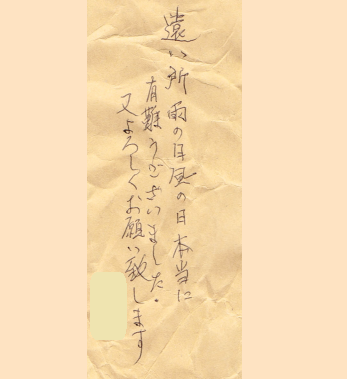 遠い所雨の日風の日本当に
有難うございました。
又よろしくお願い致します